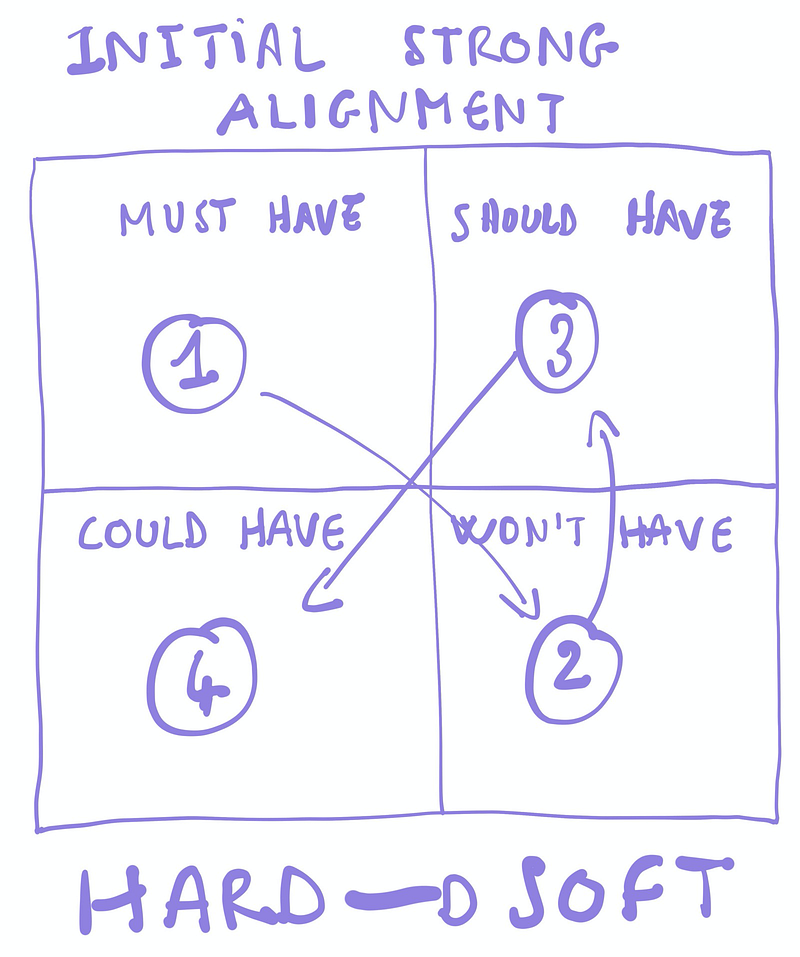 INITIAL STRONG
ALIGNMENT
MUST HAVE
SHOULD HAVE
1
3
COULD HAVE
WON'T HAVE
4
2
HARD SOFT